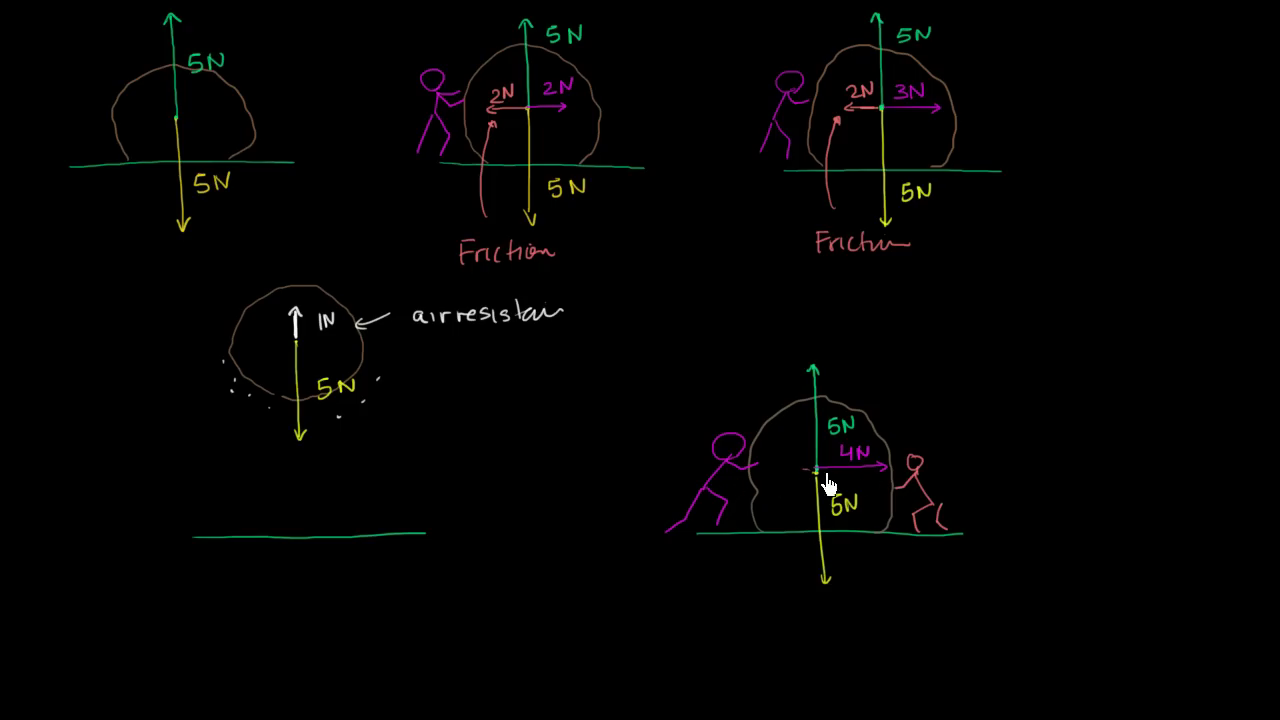 5N
5N
5N
2N 2N
5N
Friction
5N
2N 3N
5N
Frictun
1N
5N
air resistan
5N
4N
5N